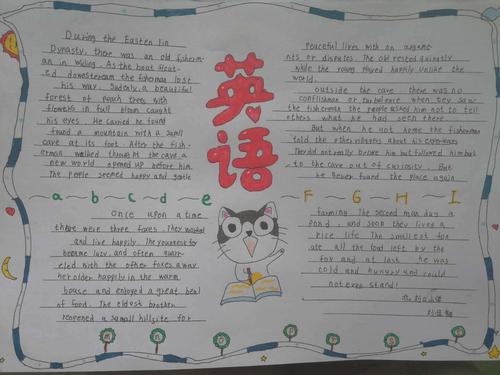 During the Easten Jin
Dynasty, there was an old fisherm-
an in Wuling. As the boat float-
ed downstream the fisherman lost
his way. Sudenly, a beautiful
forest of peach trees with
flowers in full bloom caught
his eyes. He carried he found
found a mountain with a small
cave at its foot. After the fish-
erman walked through the cave, a
new world opened up before him.
The people seemed happy and gentle
英语
Peaceful lives with on argume-
nts or disputes. The old rested quietly
while the young played happily Unlike the
world.
outside the cave there was no
or turbulence when they saw
the fisherman the people asked him not to tell
others what he had seen there
But when he got home the fisherman
told the other villagers about his experiences
They did not really believe him but followed him back
to the cave out of curiosity. But
he never found the place again
a b c d e
F G H I
Once upon a time
there were three foxes. They worked
and live happily. The youngest fox
became lazy, and often quarr-
eled with the other foxes. away.
her older happily in the warm
house and enjoyed a great deal
of food. The eldest brother
reopened a samall hillsite for
farming. The second man dug a
pond, and soon they lived a
nice life. The smallest for
ate all the food left by the
fox and at last he was
cold and hungry and could
not even stand!
m n o p q s